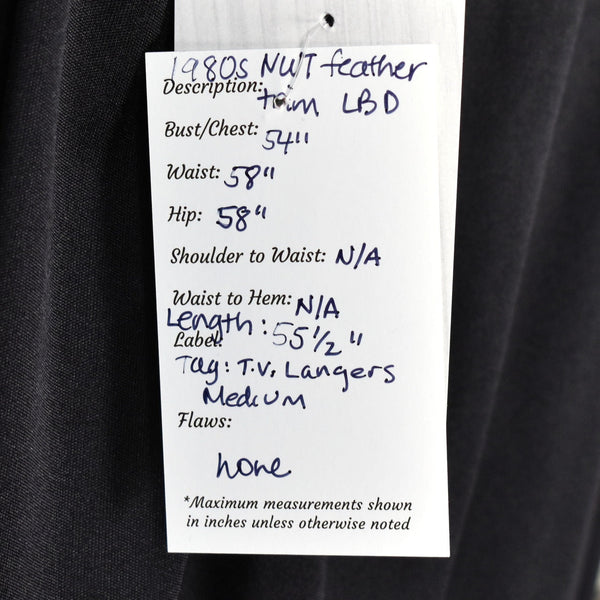 1980s NWT feather
Description: trim LBD
Bust/Chest: 54"
Waist: 58"
Hip: 58"
Shoulder to Waist: N/A
Waist to Hem: N/A
Length: 55 1/2"
Label:
Tag: T.V. Langers
Medium
Flaws:
none
*Maximum measurements shown
in inches unless otherwise noted